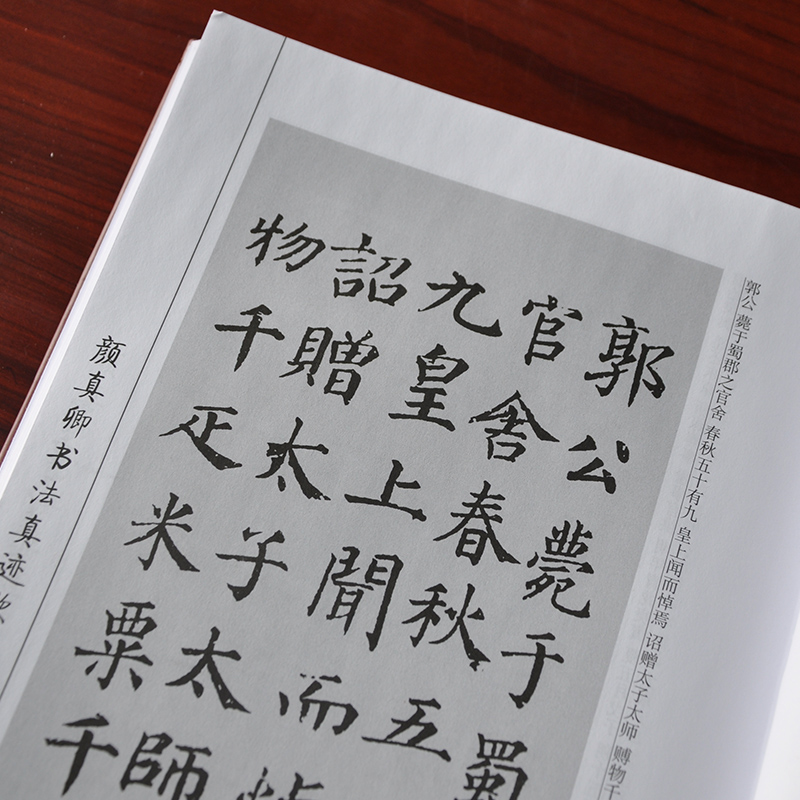 郭公 薨于蜀郡之官舍 春秋五十有九 皇上闻而悼焉 诏赠太子太师 赙物千
郭公薨于蜀
官舍春秋五
九皇上聞而
詔贈太子太師
物千疋米粟千
颜真卿书法真迹